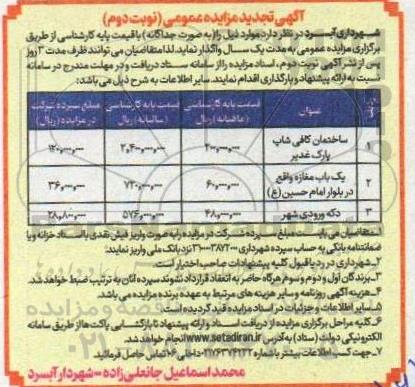 آگهی تجدید مزایده عمومی (نوبت دوم)
شهرداری آبسرد در نظر دارد موارد ذیل را (به صورت جداگانه) با قیمت پایه کارشناسی از طریق
برگزاری مزایده عمومی به مدت یک سال واگذار نماید. لذا متقاضیان می توانند ظرف مدت ۳ روز
پس از نشر آگهی نوبت دوم، اسناد مزایده را از سامانه ستاد دریافت و در مهلت مندرج در سامانه
نسبت به ارائه پیشنهاد و بارگذاری اقدام نمایند. سایر اطلاعات به شرح ذیل می باشد:
عنوان قیمت پایه کارشناسی (ماهیانه) ریال قیمت پایه کارشناسی (سالیانه) ریال مبلغ سپرده شرکت در مزایده (ریال)
۱ ساختمان کافی شاپ پارک غدیر ۲۰۰،۰۰۰،۰۰۰ ۲،۴۰۰،۰۰۰،۰۰۰ ۱۲۰،۰۰۰،۰۰۰
۲ یک باب مغازه واقع در بلوار امام حسین (ع) ۶۰،۰۰۰،۰۰۰ ۷۲۰،۰۰۰،۰۰۰ ۳۶،۰۰۰،۰۰۰
۳ دکه ورودی شهر ۴۸،۰۰۰،۰۰۰ ۵۷۶،۰۰۰،۰۰۰ ۲۸،۸۰۰،۰۰۰
۱_متقاضیان می بایست مبلغ سپرده شرکت در مزایده را به صورت واریز فیش نقدی یا اسناد خزانه و یا
ضمانتنامه بانکی به حساب سپرده شهرداری نزد بانک ملی واریز نمایند:
۲_شهرداری در رد یا قبول کلیه پیشنهادات صاحب اختیار است.
۳_برندگان اول و دوم و سوم هرگاه حاضر به انعقاد قرارداد نشوند سپرده آنان به ترتیب ضبط خواهد شد.
۴_هزینه آگهی روزنامه و سایر هزینه های مرتبط به عهده برنده مزایده می باشد.
۵_سایر اطلاعات و جزئیات در اسناد مزایده قید گردیده است.
۶_کلیه مراحل برگزاری مزایده از دریافت اسناد و ارائه پیشنهاد تا بازگشایی پاکت ها از طریق سامانه
الکترونیکی دولت (ستاد) به آدرس www.setadiran.ir انجام خواهد شد.
۷_جهت کسب اطلاعات بیشتر با شماره داخلی تماس حاصل فرمائید.
محمد اسماعیل جانعلی زاده - شهردار آبسرد